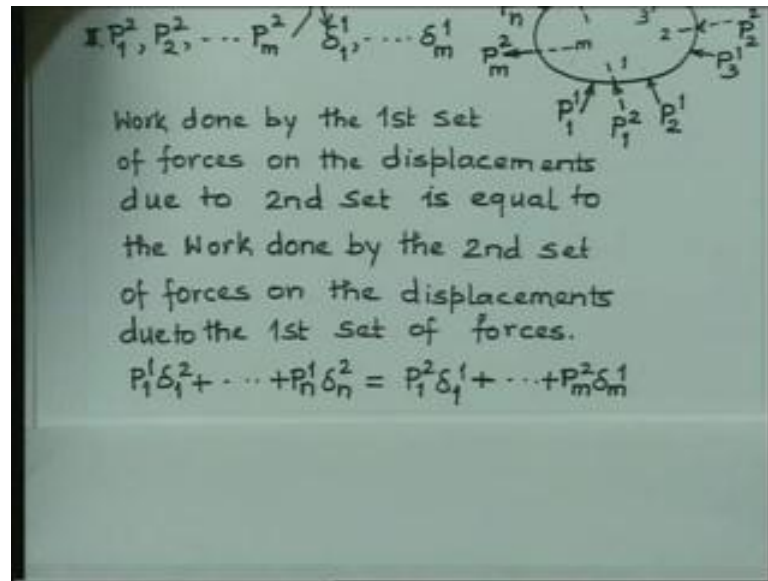 II. P₁², P₂², --- Pₘ² / δ₁¹, ---- δₘ¹
n
3
2
P₂²
Pₘ²
m
1
P₃¹
P₁¹
P₁²
P₂¹
Work done by the 1st set
of forces on the displacements
due to 2nd set is equal to
the work done by the 2nd set
of forces on the displacements
due to the 1st set of forces.
P₁¹δ₁² + - ··· + Pₙ¹δₙ² = P₁²δ₁¹ + - ·· + Pₘ²δₘ¹